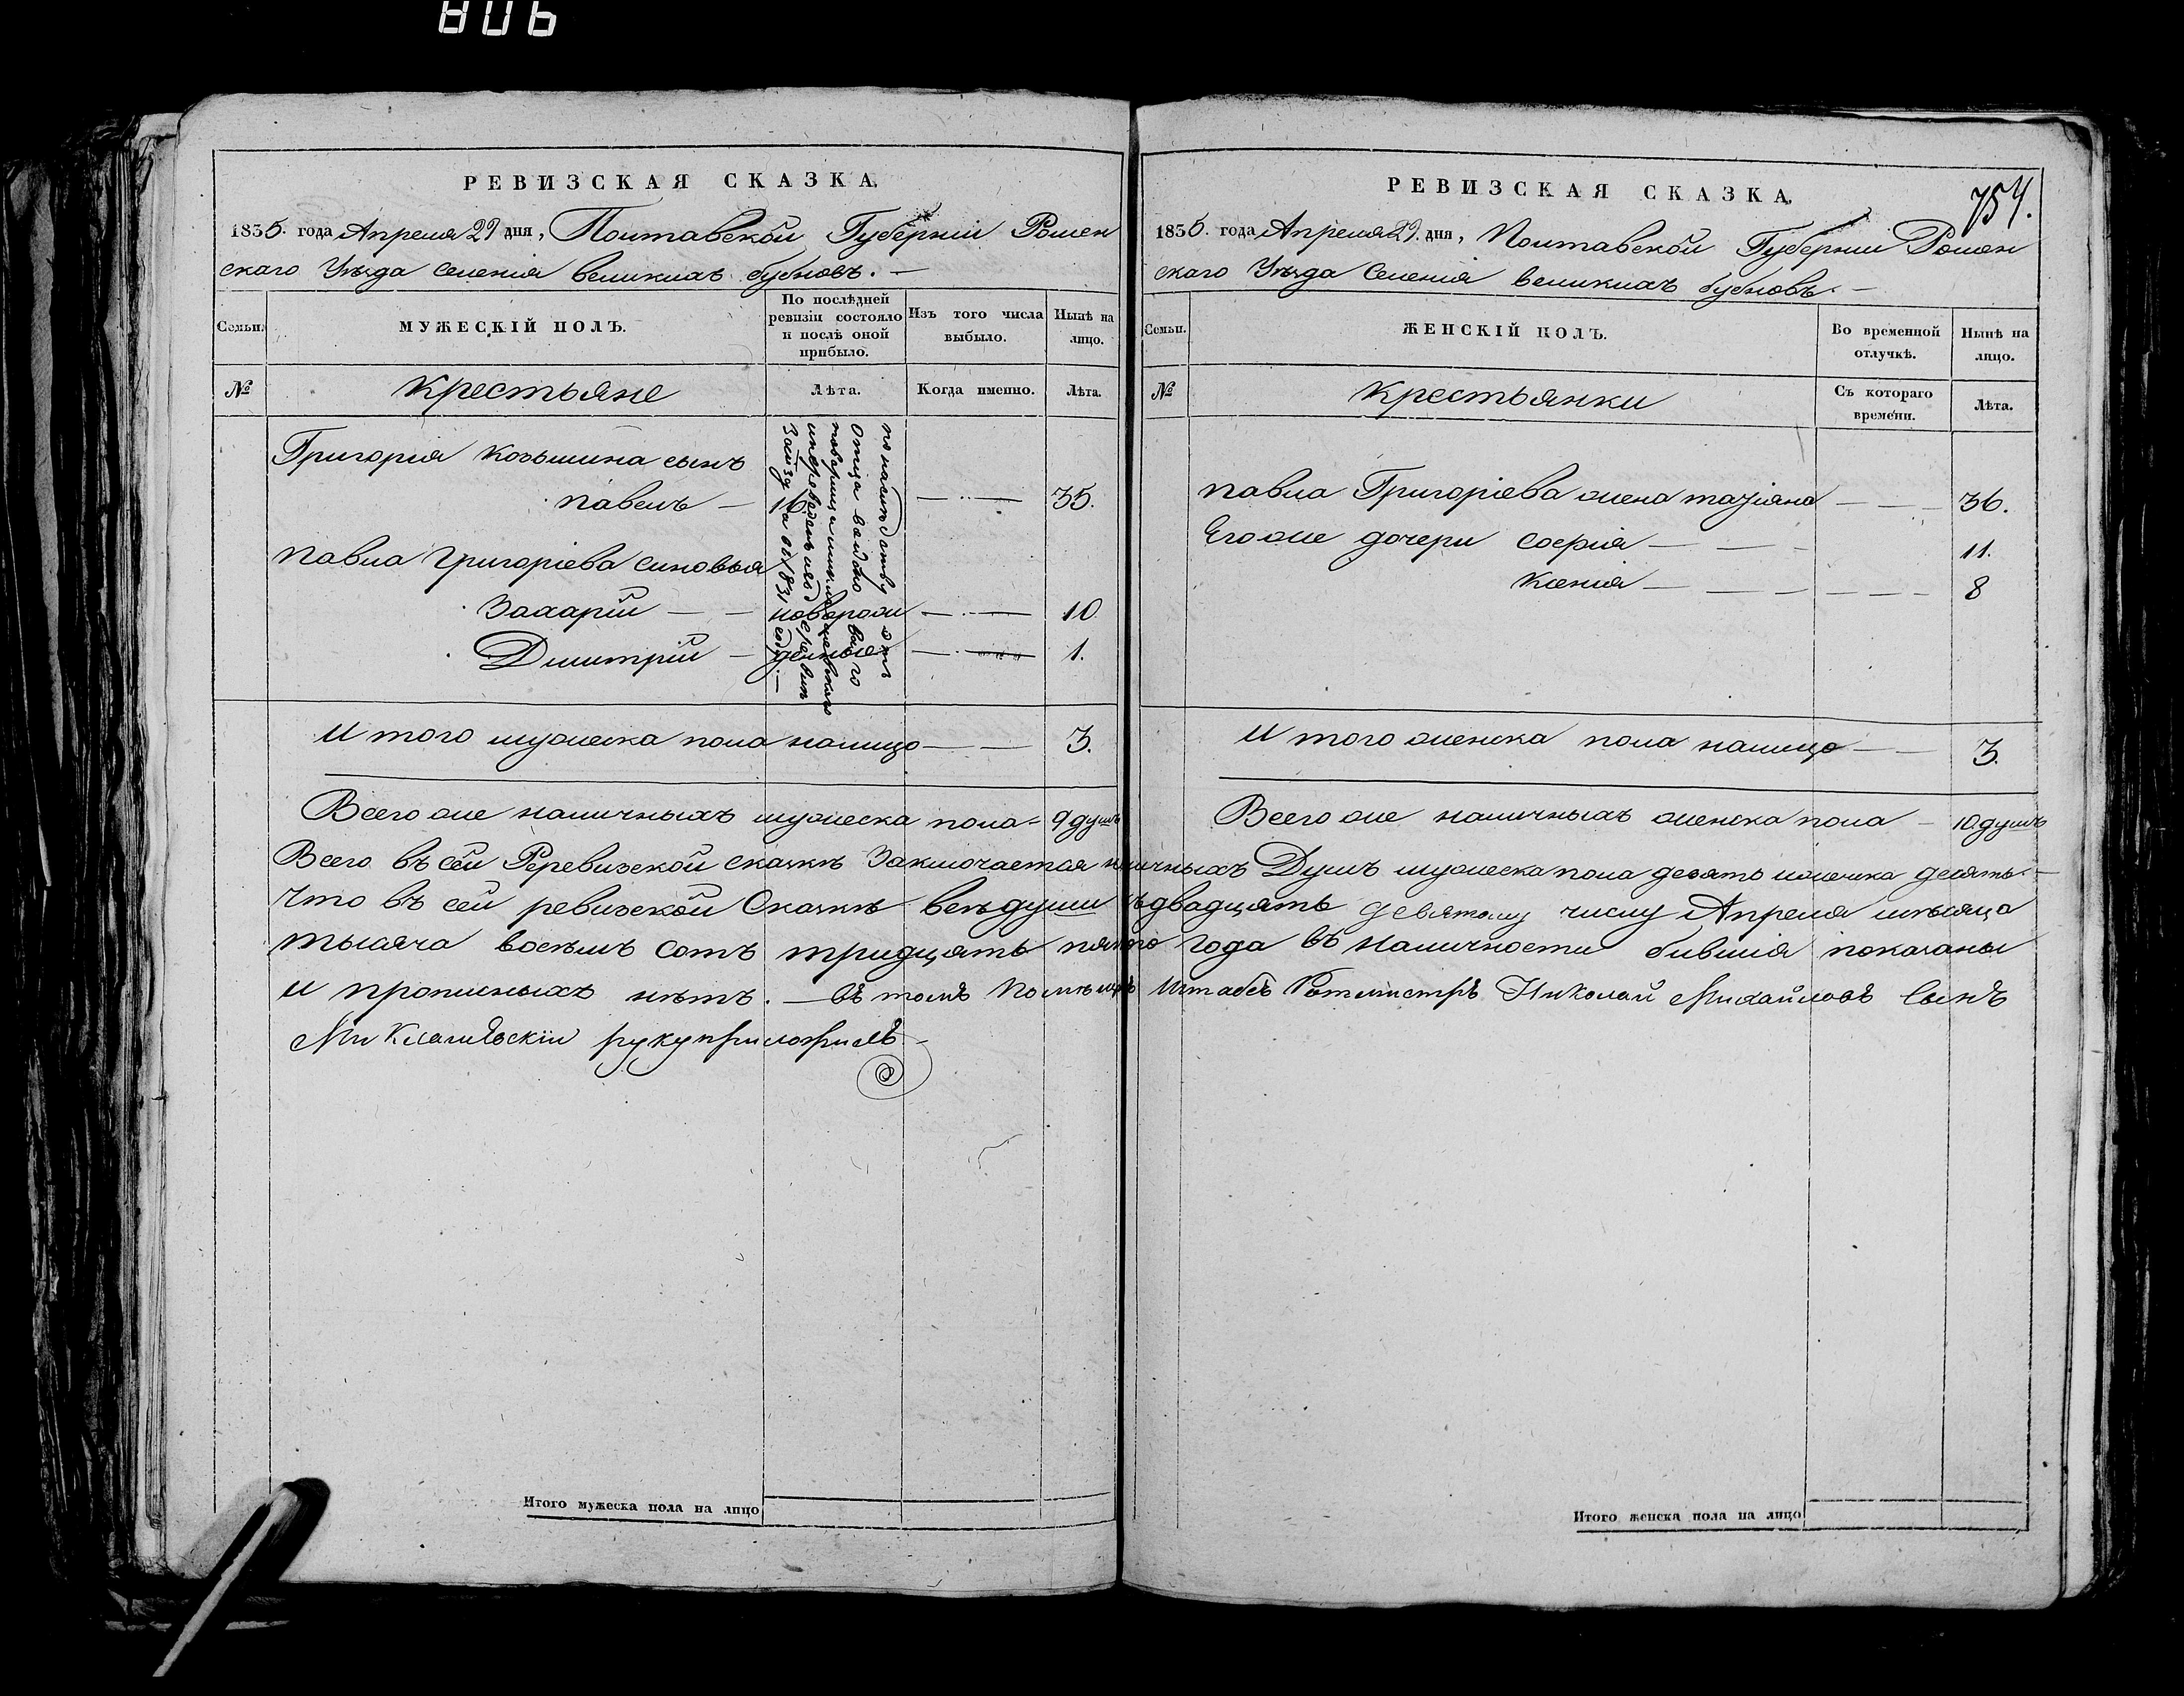 806
РЕВИЗСКАЯ СКАЗКА.
1835. года Апреля 29 дня, Полтавской Губерніи Ромен
скаго Уѣзда селенія великихъ бубновъ. —
Семьи.
МУЖЕСКІЙ ПОЛЪ.
По послѣдней ревизіи состояло и послѣ оной прибыло.
Изъ того числа выбыло.
Нынѣ на лицо.
№
Крестьяне
Лѣта.
Когда именно.
Лѣта.
Григорія Козьмина сынъ
павелъ — 16 — 35.
по наследству отъ
отца
павла григоріева синовья
Захарій — — новорож — 10
Димитрій — денные — 1.
И того мужеска пола налицо — — 3.
Всего же наличныхъ мужеска пола - 9 душъ
Итого мужеска пола на лицо
РЕВИЗСКАЯ СКАЗКА.
754.
1835. года Апреля 29. дня, Полтавской Губерніи Ромен
скаго Уѣзда Селенія великихъ бубновъ. —
Семьи.
ЖЕНСКІЙ ПОЛЪ.
Во временной отлучкѣ.
Нынѣ на лицо.
№
Крестьянки
Съ котораго времени.
Лѣта.
павла Григоріева жена татіана — — — 36.
Егоже дочери софія — — — 11.
Ксенія — — — — — — 8
И того женска пола налицо — — 3.
Всего же наличныхъ женска пола — 10 душъ
Всего въ сей Ревизской скаскѣ Заключается наличныхъ Душъ мужеска пола девять ижненска десять. —
Что въ сей ревизской Скаскѣ всѣ души къ двадцять девятому числу Апреля мѣсяца
тысяча восѣмъ сотъ тридцять пятого года въ наличности бившія показаны
и прописныхъ нѣтъ. — Въ томъ Помѣщикъ Штабсъ Ротмистръ Николай Михайловъ Сынъ
Миклашевскій руку приложилъ
Итого женска пола на лицо